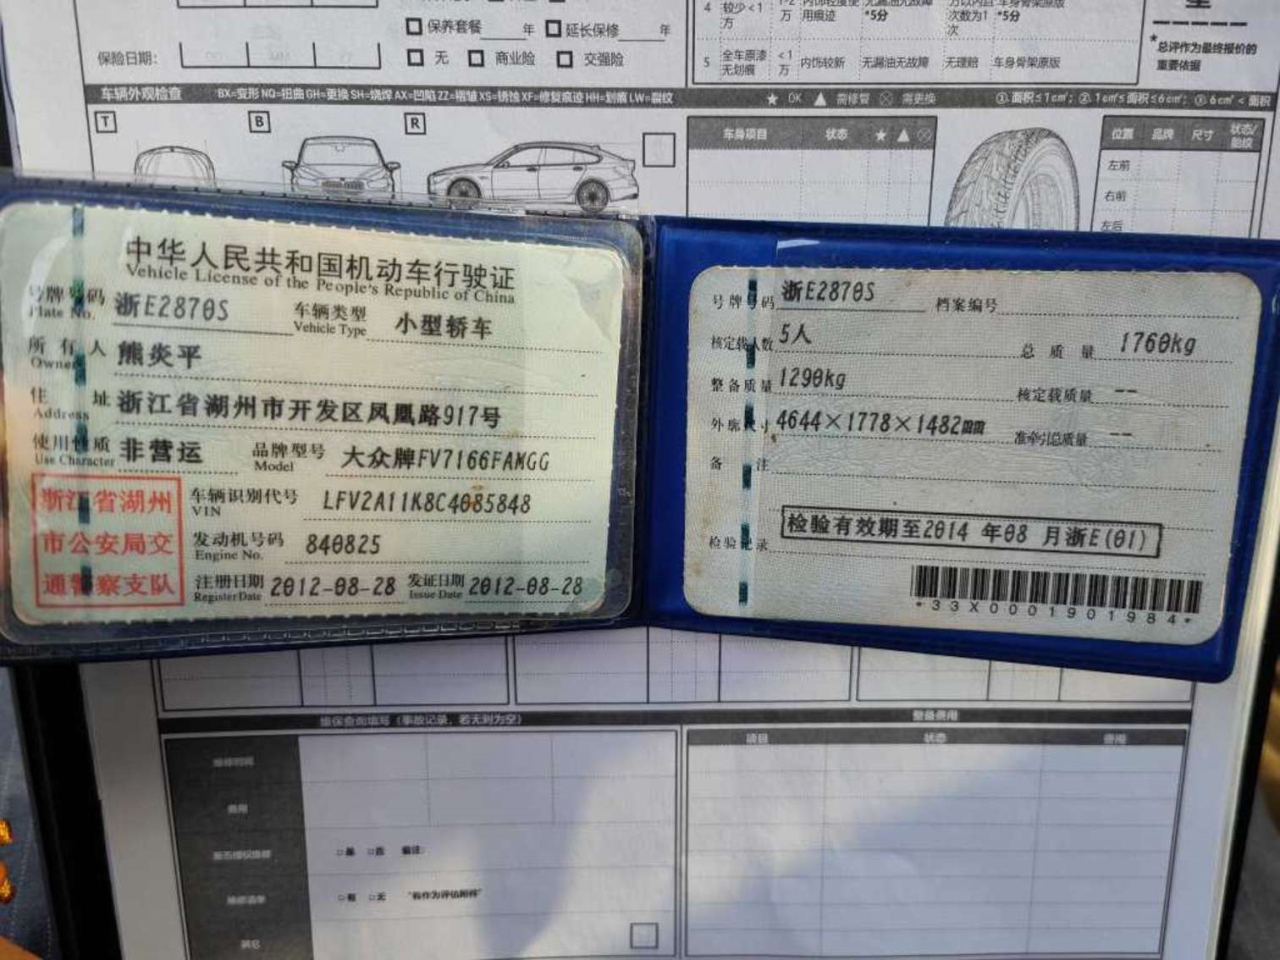 4 较少<1万 1-2万 内饰轻度使用痕迹 无漏油无故障 *5分 次数为1次 车身骨架原版 *5分
保养套餐 年 延长保修 年
*总评作为最终报价的重要依据
保险日期： 无 商业险 交强险
5 全车原漆无划痕 <1万 内饰较新 无漏油无故障 无理赔 车身骨架原版
车辆外观检查 BX=变形 NQ=扭曲 GH=更换 SH=烧焊 AX=凹陷 ZZ=褶皱 XS=锈蚀 XF=修复痕迹 HH=划痕 LW=裂纹 ★ OK ▲ 需修复 ⊗ 需更换 ①.面积≤1c㎡; ②.1c㎡≤面积≤6c㎡; ③.6c㎡<面积
T B R
车身项目 状态 ★ ▲ ⊗
位置 品牌 尺寸 状态/胎纹
左前
右前
左后
中华人民共和国机动车行驶证
Vehicle License of the People's Republic of China
号牌号码 浙E2870S 车辆类型 小型轿车
Plate No. Vehicle Type
所有人 熊炎平
Owner
住址 浙江省湖州市开发区凤凰路917号
Address
使用性质 非营运 品牌型号 大众牌FV7166FAMGG
Use Character Model
浙江省湖州
市公安局交
通警察支队
车辆识别代号 LFV2A11K8C4085848
VIN
发动机号码 840825
Engine No.
注册日期 2012-08-28 发证日期 2012-08-28
Register Date Issue Date
号牌号码 浙E2870S 档案编号
核定载人数 5人 总质量 1760kg
整备质量 1290kg 核定载质量 --
外廓尺寸 4644×1778×1482mm 准牵引总质量 --
备注
检验有效期至2014 年08 月浙E(01)
检验记录
*33X0001901984*
维保查询填写（事故记录，若无则为空） 整备费用
维修时间
项目 状态 费用
费用
□是 □否 备注:
□有 □无 "我作为评估附件"